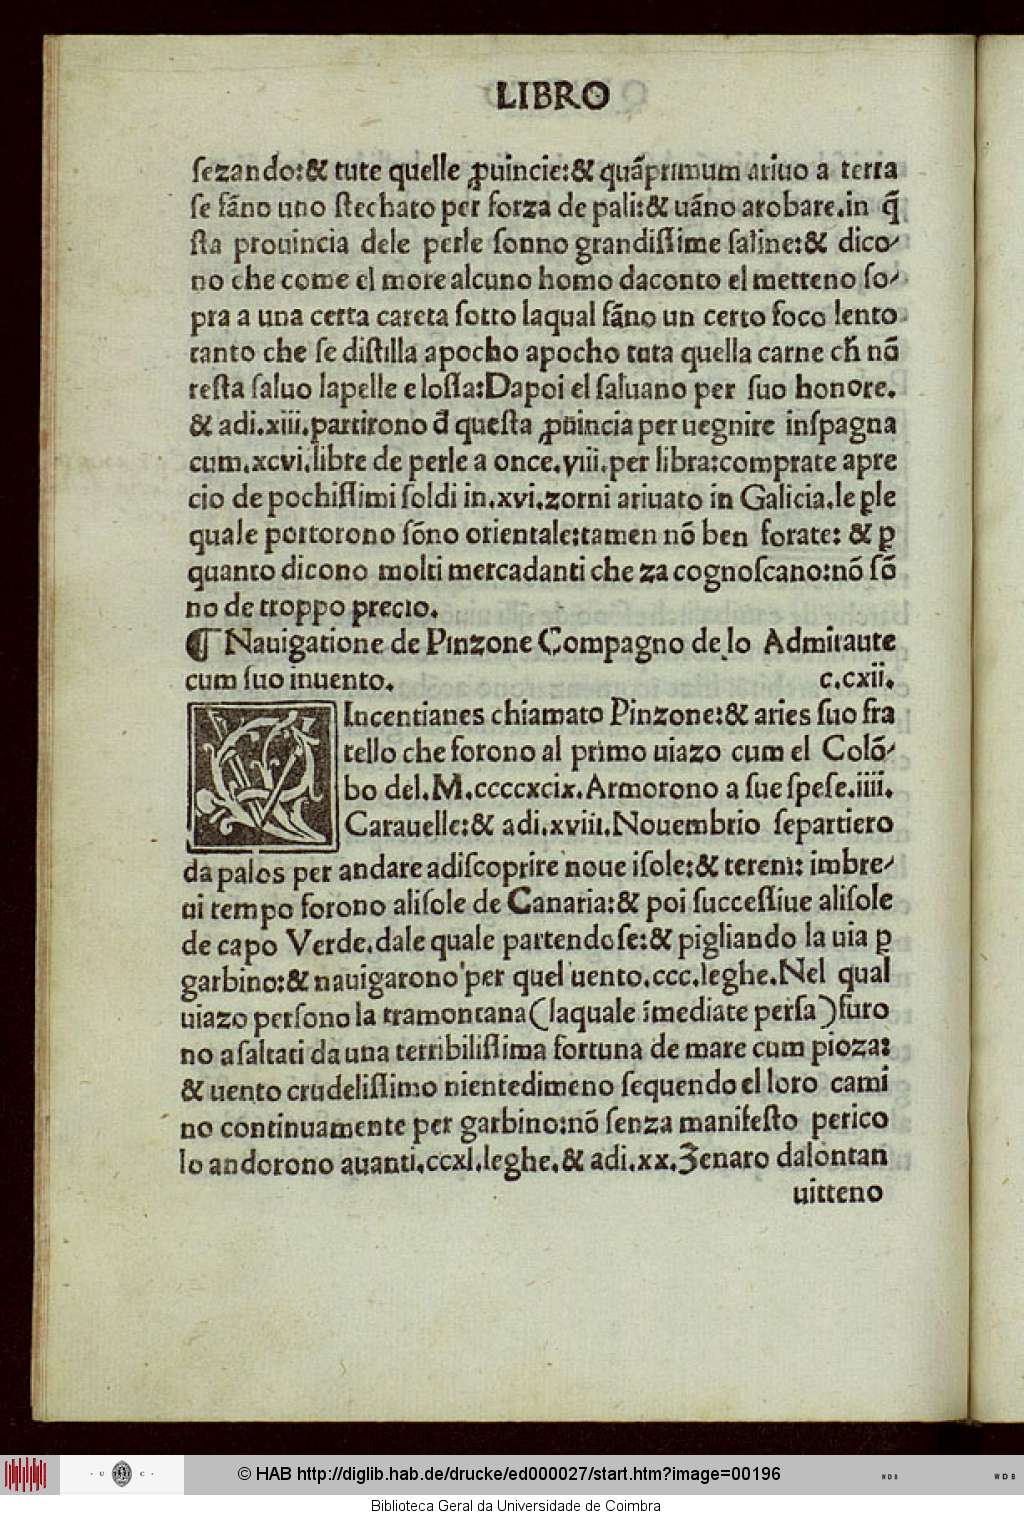 LIBRO
ſezando:& tute quelle ꝓuincie:& quãprimum ariuo a terra
ſe fãno uno ſtechato per forza de pali:& uãno arobare.in q̃
ſta prouincia dele perle ſonno grandiſſime ſaline:& dico-
no che come el more alcuno homo daconto el metteno ſo-
pra a una certa careta ſotto laqual fãno un certo foco lento
tanto che ſe diſtilla apocho apocho tuta quella carne ch̃ nõ
reſta ſaluo lapelle e loſſa:Dapoi el ſaluano per ſuo honore.
& adi.xiii.partirono đ queſta ꝓuincia per uegnire inſpagna
cum.xcvi.libre de perle a once.viii.per libra:comprate apre
cio de pochiſſimi ſoldi in.xvi.zorni ariuato in Galicia.le ꝑle
quale portorono ſõno orientale:tamen nõ ben forate: & ꝑ
quanto dicono molti mercadanti che za cognoſcano:nõ ſõ
no de troppo precio.
¶ Nauigatione de Pinzone Compagno de lo Admirante
cum ſuo inuento. c.cxii.
VIncentianes chiamato Pinzone:& aries ſuo fra
tello che forono al primo uiazo cum el Colõ-
bo del.M.ccccxcix.Armorono a ſue ſpeſe.iiii.
Carauelle:& adi.xviii.Nouembrio ſepartiero
da palos per andare adiſcoprire noue iſole:& tereni: imbre-
ui tempo forono aliſole de Canaria:& poi ſucceſſiue aliſole
de capo Verde.dale quale partendoſe:& pigliando la uia ꝑ
garbino:& nauigarono per quel uento.ccc.leghe.Nel qual
uiazo perſono la tramontana(laquale ĩmediate perſa)furo
no aſaltati da una terribiliſſima fortuna de mare cum pioza:
& uento crudeliſſimo nientedimeno ſequendo el loro cami
no continuamente per garbino:nõ ſenza manifeſto perico
lo andorono auanti.ccxl.leghe.& adi.xx.Zenaro dalontan
uitteno
© HAB http://diglib.hab.de/drucke/ed000027/start.htm?image=00196
· U C ·
WDB
WDB
Biblioteca Geral da Universidade de Coimbra